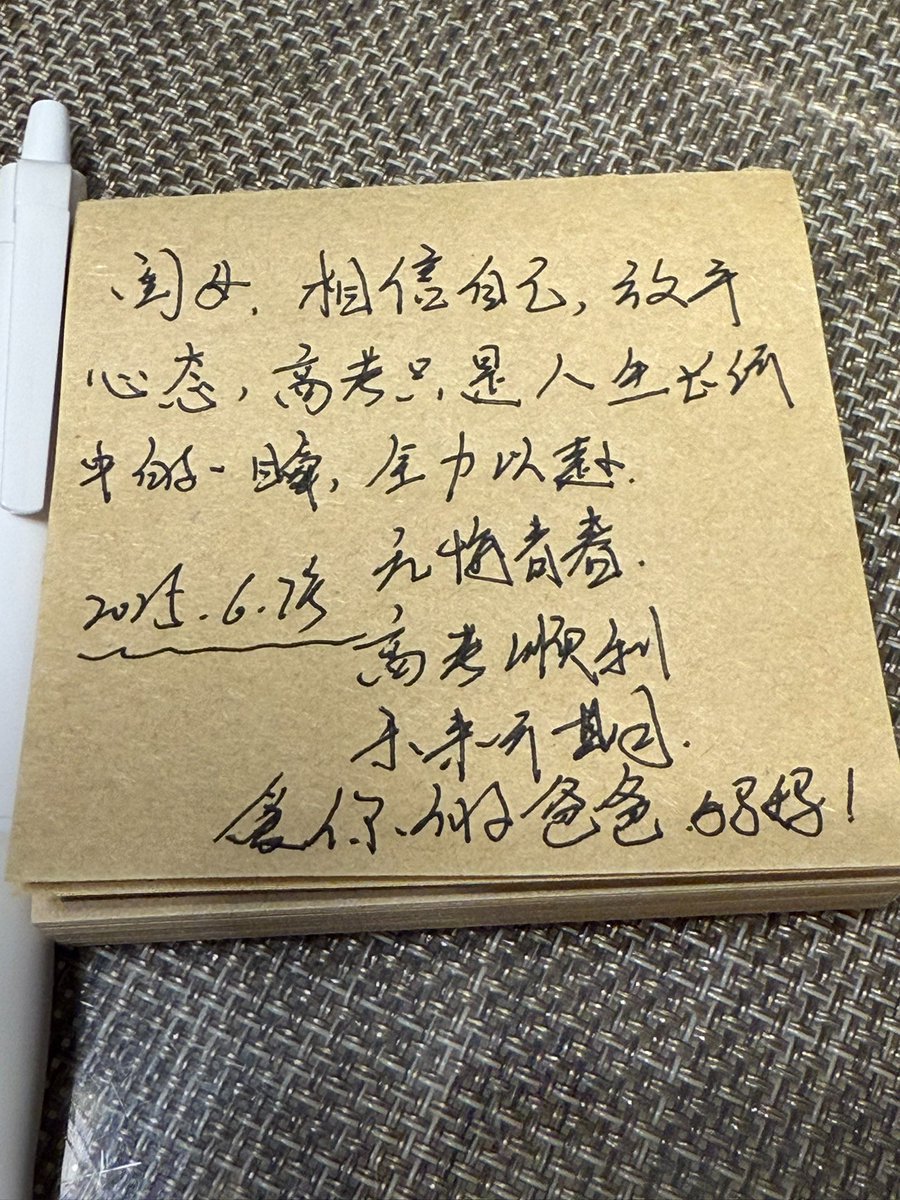 闺女，相信自己，放平
心态，高考只是人生长河
中的一瞬，全力以赴.
无悔青春.
2025.6.7
高考顺利
未来可期.
爱你的爸爸妈妈！